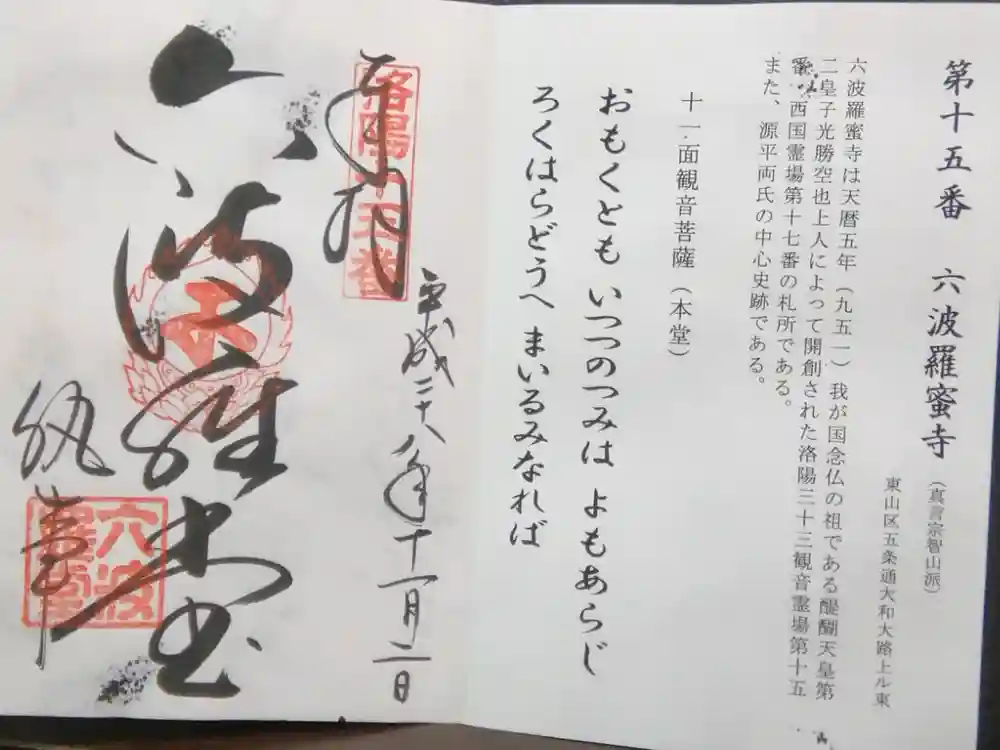 第十五番 六波羅蜜寺 (真言宗智山派)
東山区五条通大和大路上ル東
六波羅蜜寺は天暦五年(九五一)我が国念仏の祖である醍醐天皇第
二皇子光勝空也上人によって開創された洛陽三十三観音霊場第十五
番、西国霊場第十七番の札所である。
また、源平両氏の中心史跡である。
十一面観音菩薩(本堂)
おもくとも いつつのつみは よもあらじ
ろくはらどうへ まいるみなれば
平成二十八年十一月二日
奉拝
洛陽十五番
六波羅堂
六波
羅堂